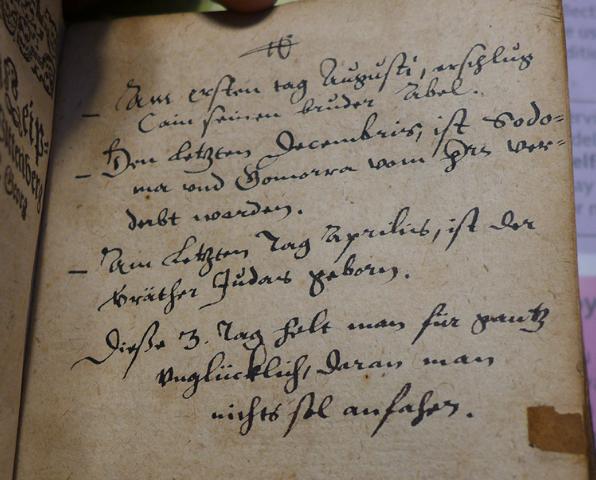 Leip-
Wittenberg
Georg
Am ersten tag Augusti, erschlug
Cain seinen bruder Abel.
Den letzten Decembris, ist Sodo=
ma vnd Gomorra vom hrn ver=
derbt worden.
Am letzten Tag Aprilis, ist der
Vräther Judas geborn.
Dieße 3. Tag helt man für gantz
vnglücklich, daran man
nichts sol anfahen.